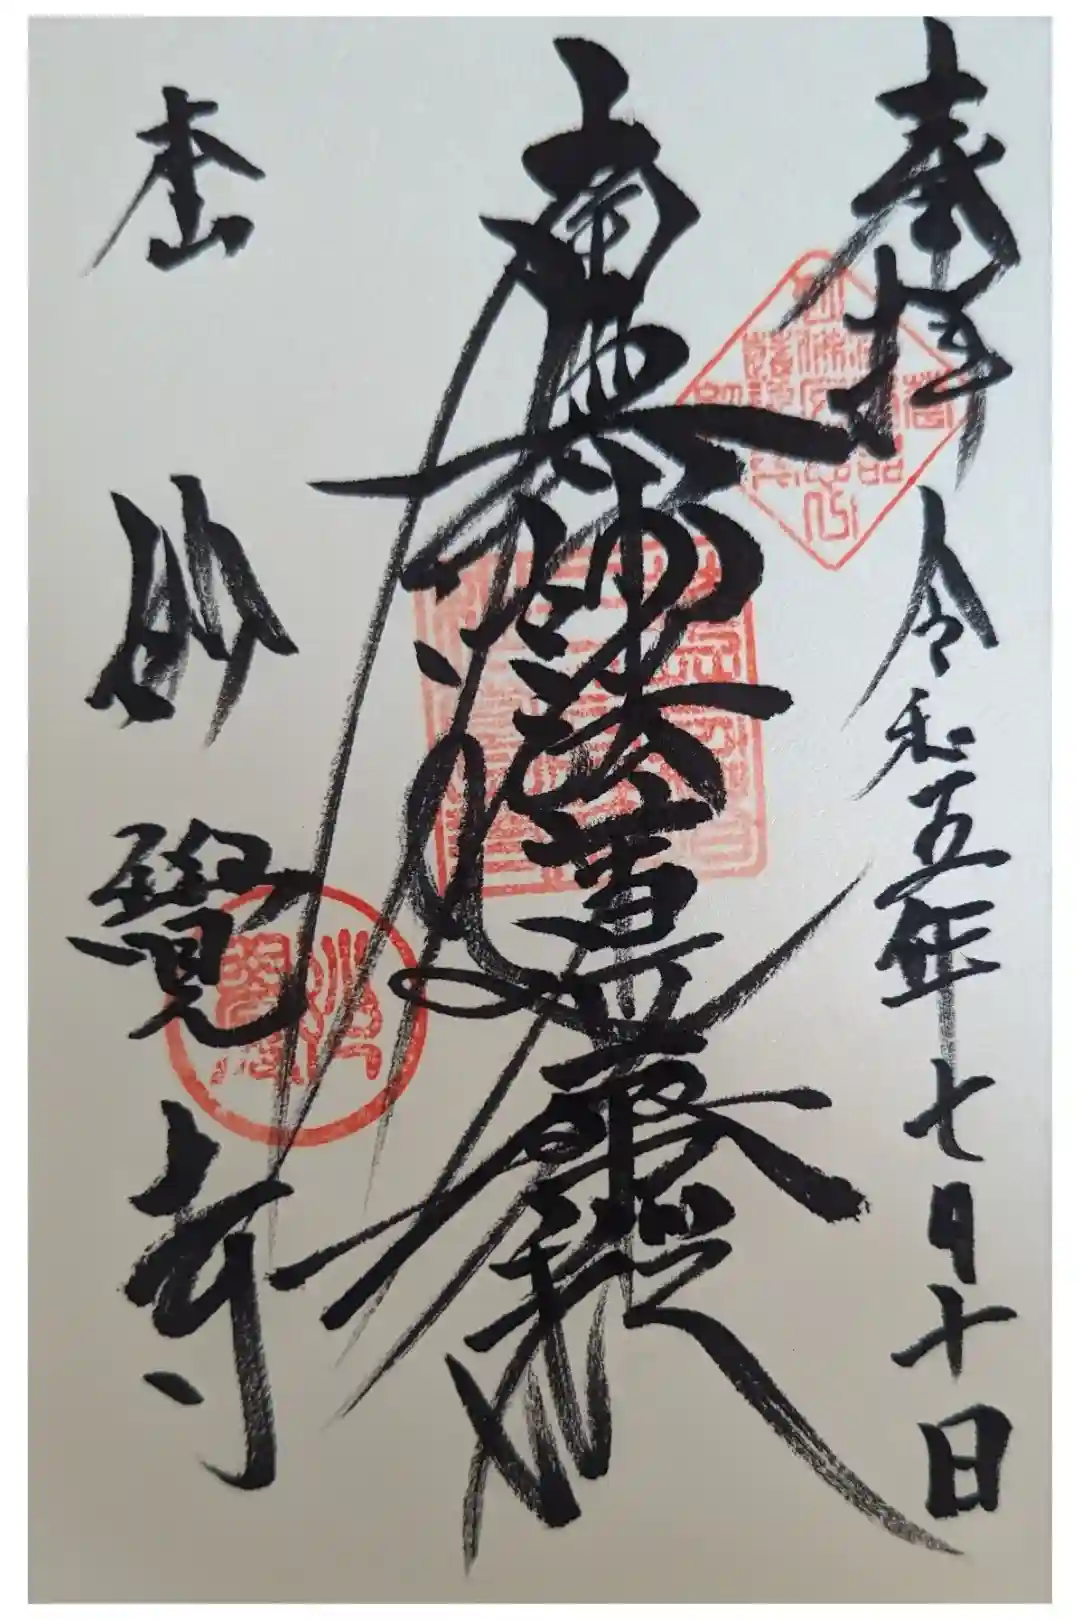 奉拝
令和五年七月十日
南無妙法蓮華経
本山
妙覺寺